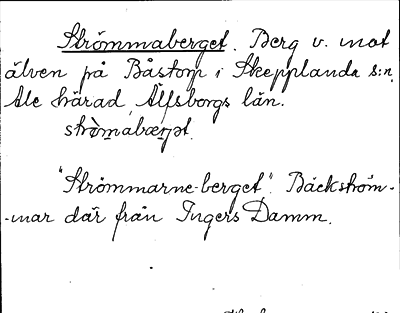 Strömmaberget. Berg v. mot
älven på Båstorp i Skepplanda s:n,
Ale härad, Älfsborgs län.
"Strömmarne-berget". Bäckström-
-mar där från Ingers Damm.